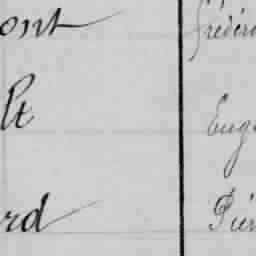 ont Frédéri
lt Eug
rd Pier